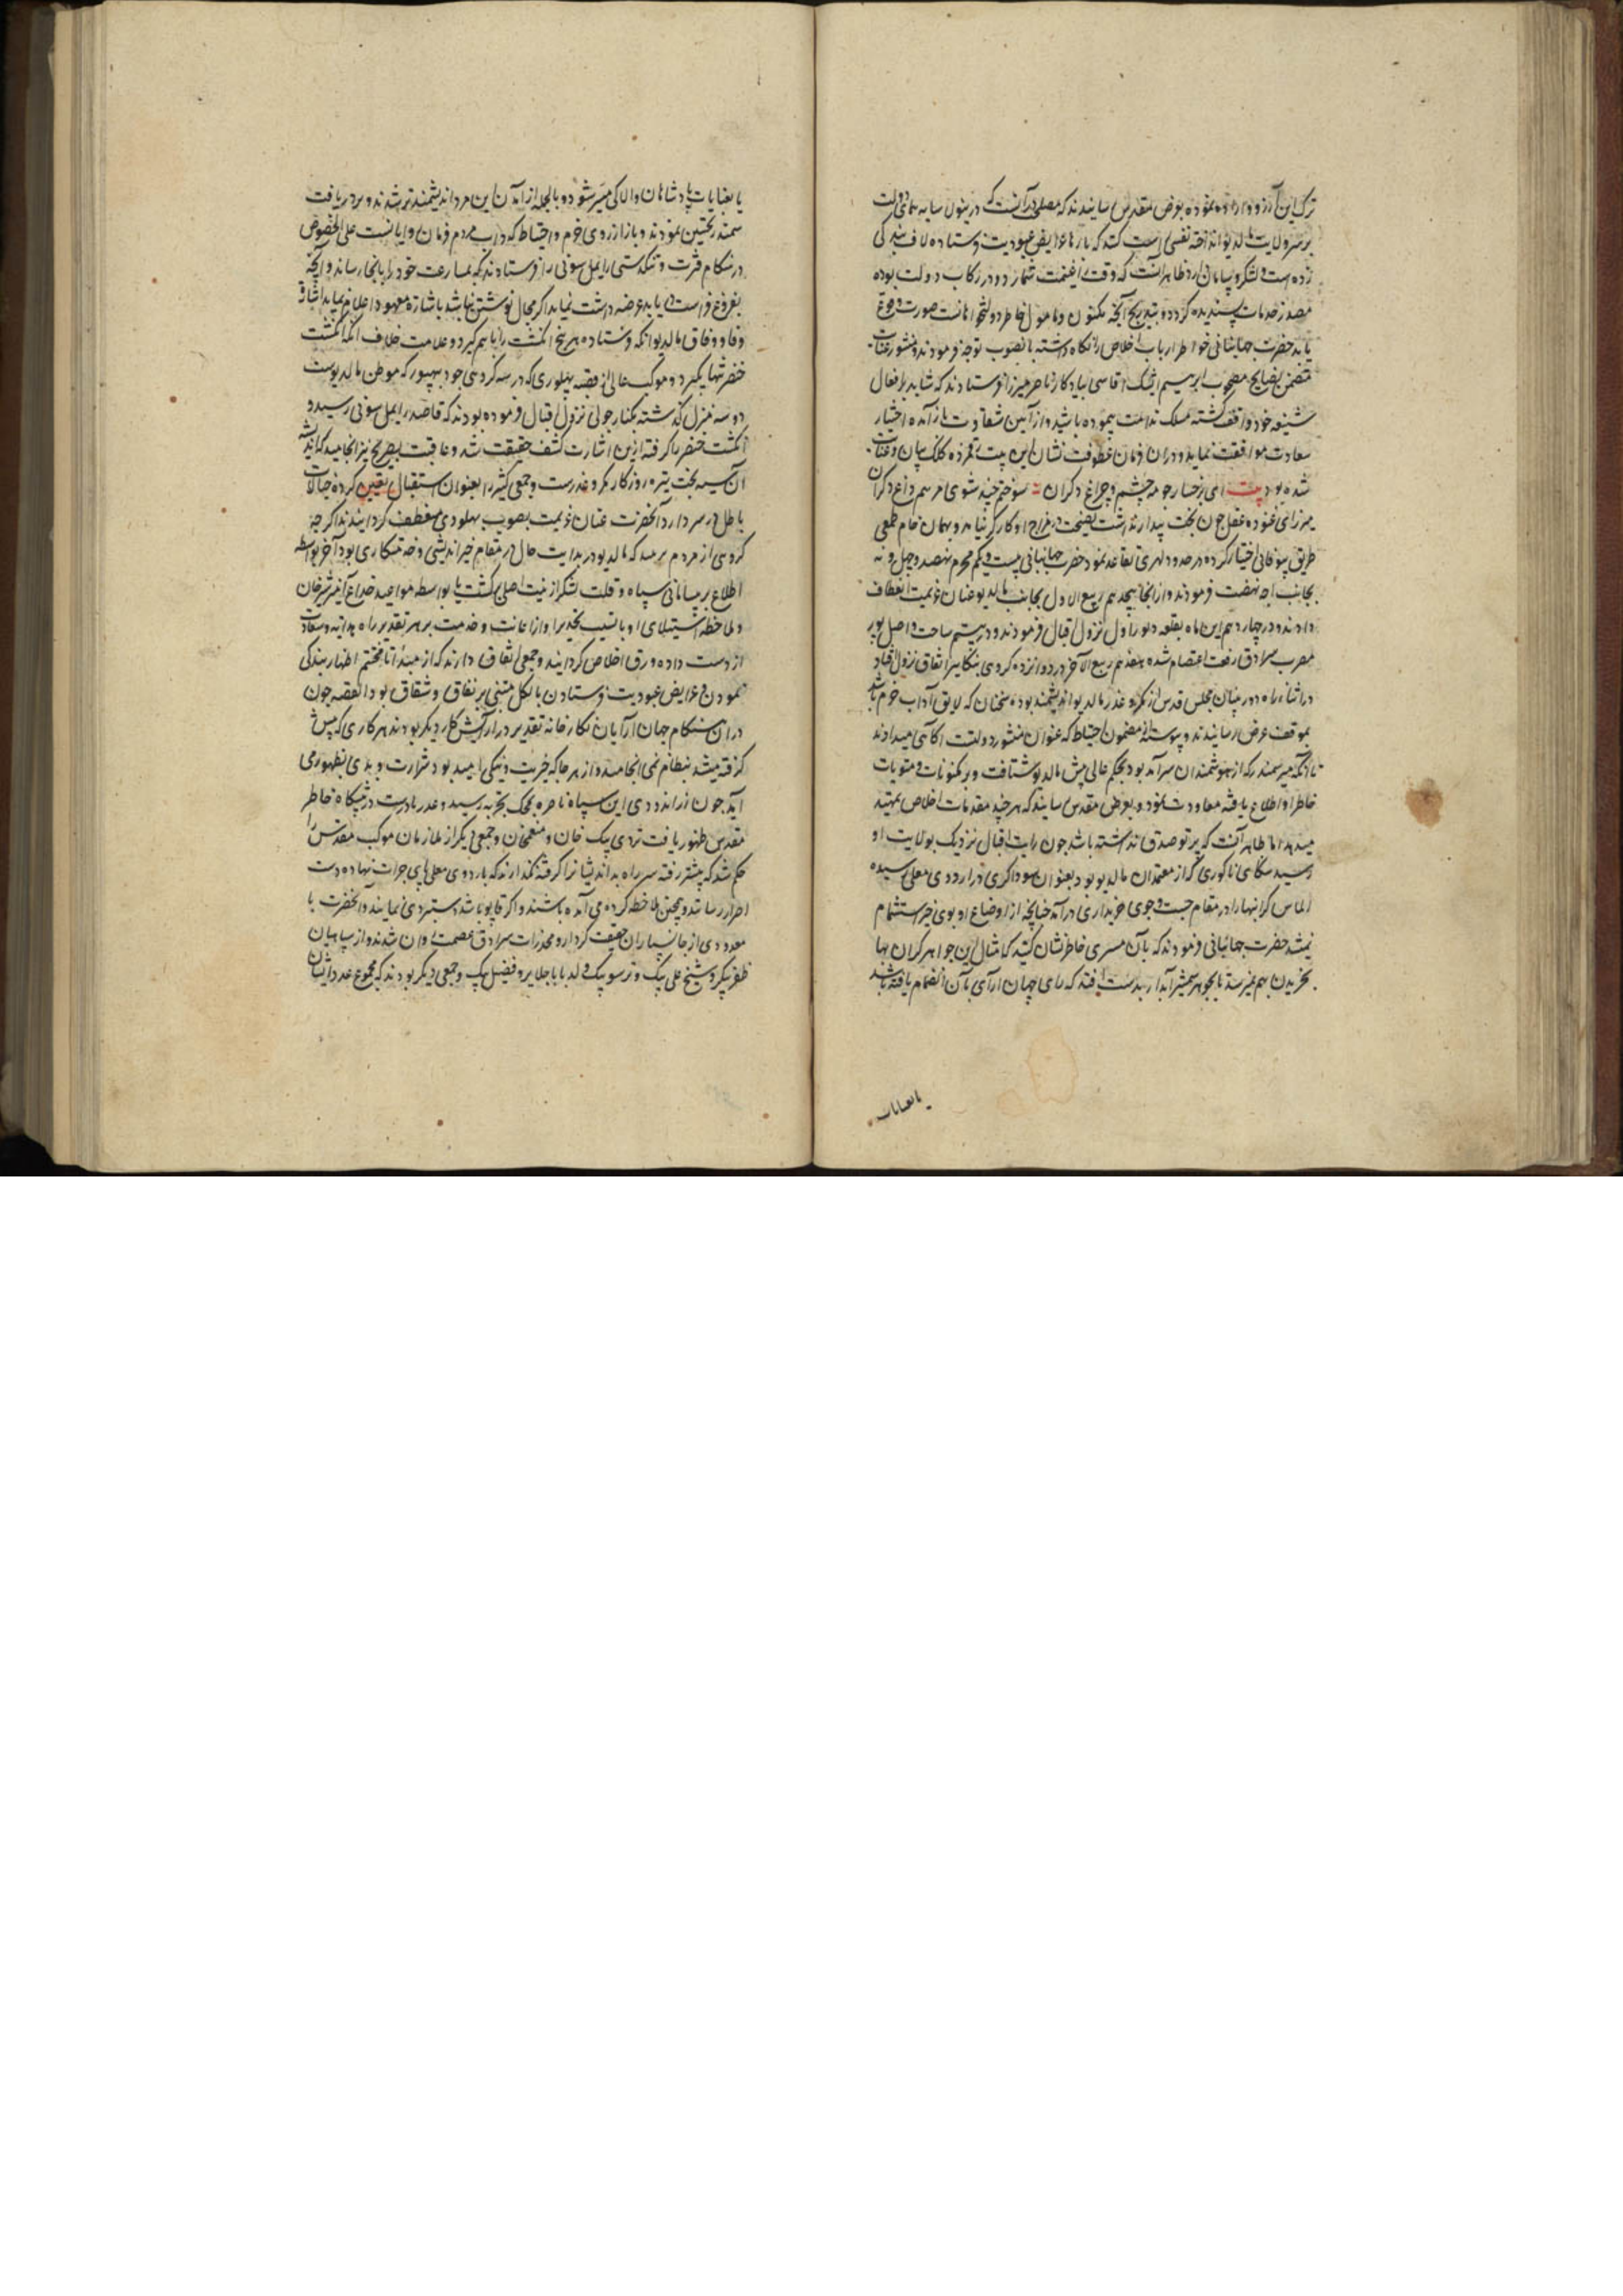 ترک این آرزو و اراده نموده بعرض مقدس رسانیدند که مصلحت در آنست که درینولا سایه همای دولت
بر سر ولایت مالدیو انداخته نفسی راست کنند که بارها عرایض عبودیت فرستاده لاف بندگی
زده است و لشکر و سامان دارد ظاهر آنست که وقت را غنیمت شمارد و در رکاب دولت بوده
مصدر خدمات پسندیده گردد و بتدریج آنچه مکنون و مامول خاطر دولتخواهانست صورت وقوع
یابد حضرت جهانبانی خواطر ارباب اخلاص را نگاه داشته بانصوب توجه فرمودند و منشور عنایت
متضمن نصایح مصحوب ابرهیم ایشک اقاسی بیادکار ناصر میرزا فرستادند که شاید بر افعال
شنیعه خود واقف گشته مسلک ندامت پیموده باشد و از آیین شقاوت باز آمده اختیار
سعادت موافقت نماید و دران فرمان عطوفت نشان این بیت رقمزده کلک بیان و عنایت
شده بود بیت ای ز رخسار چو مه چشم و چراغ دگران سوختم چند شوی مرهم داغ دگران
میرزای غنوده عقل چون بخت بیدار نداشت نصیحت در مزاج او کارگر نیامد و بهمان خام طمعی
طریق بیوفائی اختیار کرده در حدود لهری تقاعد نمود حضرت جهانبانی بیست و یکم محرم نهصد و چهل و نه
بجانب اجه نهضت فرمودند و از انجا هیجدهم ربیع الاول بجانب مالدیو عنان عزیمت انعطاف
دادند و در چهاردهم این ماه بقلعه دیوراول نزول اقبال فرمودند و در بیستم ساحت واصل پور
مضرب سرادق رفعت اعتصام شده هفدهم ربیع الآخر در دوازده کروهی بیکانیر اتفاق نزول افتاد
در اثناء راه دوربینان مجلس قدس از مکر و غدر مالدیو اندیشمند بوده سخنان که لایق آداب حزم باشد
بموقف عرض رسانیدند و پیوسته از مضمون احتیاط که عنوان منشور دولتست آگاهی میدادند
تا آنکه میر سمندر که از هوشمندان سرآمد بود بحکم عالی پیش مالدیو شتافت و بر مکنونات و منویات
خاطر او اطلاع یافته معاودت نمود و بعرض مقدس رسانید که هر چند مقدمات اخلاص تمهید
میدهد اما ظاهر آنست که پرتو صدق نداشته باشد چون رایت اقبال نزدیک بولایت او
رسید سنکای ناکوری که از معتمدان مالدیو بود بعنوان سوداگری در اردوی معلی رسیده
الماس گرانبها را در مقام جست و جوی خریداری درآمد چنانچه از اوضاع او بوی خیر استشمام
نمیشد حضرت جهانبانی فرمودند که بآن مسری خاطرنشان کنید که امثال این جواهر گران بها
بخریدن بهم نمیرسد یا بجوهر شمشیر آبدار بدست افتد که رای جهان آرای بآن انضمام یافته باشد
یا بعنایات
یا بعنایات پادشاهان والا کی میسر شود و بالجمله از آمدن این مرد اندیشمندتر شدند و بر دریافت
سمندر تحسین نمودند و باز از روی حزم و احتیاط که داب مردم فرمان روایانست علی الخصوص
در هنگام فترت و تنگدستی رایمل سونی را فرستادند که بمسارعت خود را بانجا رساند و آنچه
بفروغ فراست در یابد عرضه داشت نماید اگر مجال نوشتن نباشد باشاره معهود اعلام نماید اشاره
وفا و وفاق مالدیو آنکه فرستاده هر پنج انگشت را با هم گیرد و علامت خلاف آنکه انگشت
خنصر تنها بگیرد و موکب عالی از قصبه پهلوری که در سه کروهی جودهپور که موطن مالدیوست
دو سه منزل گذشته بکنار جولی نزول اقبال فرموده بودند که قاصد رایمل سونی رسید و
انگشت خنصر را گرفته ازین اشارت کشف حقیقت شد و عاقبت بصریح نیز انجامید که اندیشه
آن سیه بخت تیره روزگار مکر و غدرست و جمعی کثیر را بعنوان استقبال تعیین کرده خیالات
باطل در سر دارد آنحضرت عنان عزیمت بصوب پهلودی منعطف گردانیدند اگر چه
گروهی از مردم برینند که مالدیو در بدایت حال در مقام خیراندیشی و خدمتکاری بود آخر بواسطه
اطلاع بر بیسامانی سپاه و قلت لشکر از نیت اصلی برگشت یا بواسطه مواعید خداع آمیز شیرخان
و ملاحظه استیلای او یا بسبب تحذیر او از اعانت و خدمت بر هر تقدیر راه هدایه و سعادت
از دست داده ورق اخلاص گردانید و جمعی اتفاق دارند که از مبدأ تا مختتم اظهار بندگی
نمودن و عرایض عبودیت فرستادن بالکل مبتنی بر نفاق و شقاق بود القصه چون
دران هنگام جهان آرایان نگارخانه تقدیر در آرایش کار دیگر بودند هر کاری که پیش
گرفته میشد بنظام نمی انجامید و از هر جا که خیریت و نیکی امید بود شرارت و بدی بظهور می
آید چون زراندودی این سپاه ناسره بمحک تجربه رسید و غدر نادرست در پیشگاه خاطر
مقدس ظهور یافت تردی بیک خان و منعمخان و جمعی دیگر از ملازمان موکب مقدس را
حکم شد که پیشتر رفته سر راه بداندیشانرا گرفته نگذارند که باردوی معلی پای جرات نهاده دست
اضرار رسانند و همچنین ملاحظه کرده می آمده باشند و اگر قابو باشد دستبردی نمایند و آنحضرت با
معدودی از جانسپاران حقیقت کردار و مخدرات سرادق عصمت روان شدند و از سپاهیان
ظفر پیکر شیخ علی بیک و ترسون بیک ولد بابا جلایر و فضیل بیک و جمعی دیگر بودند که مجموع عدد ایشان